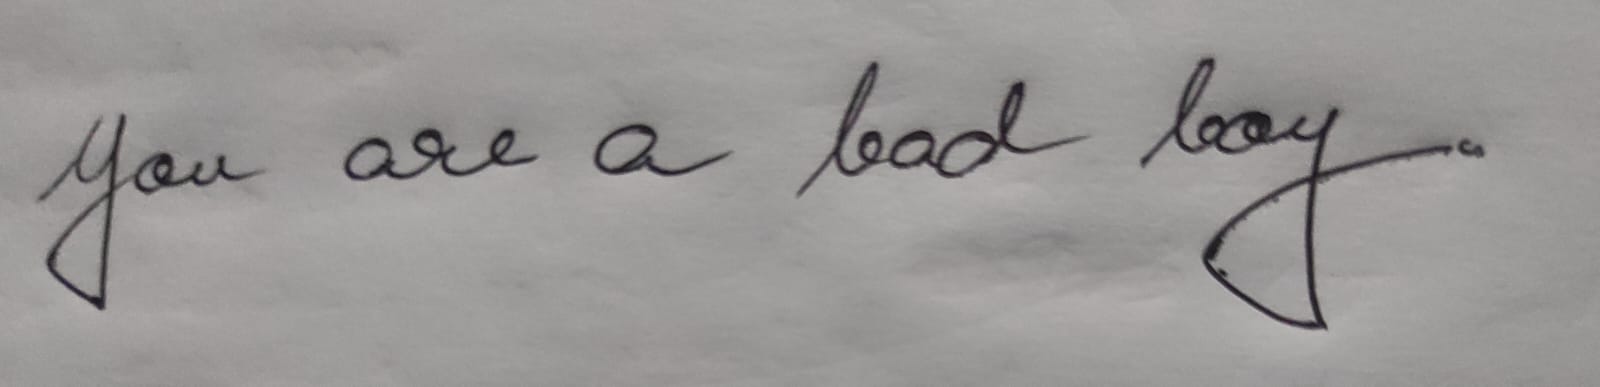 You are a bad boy.